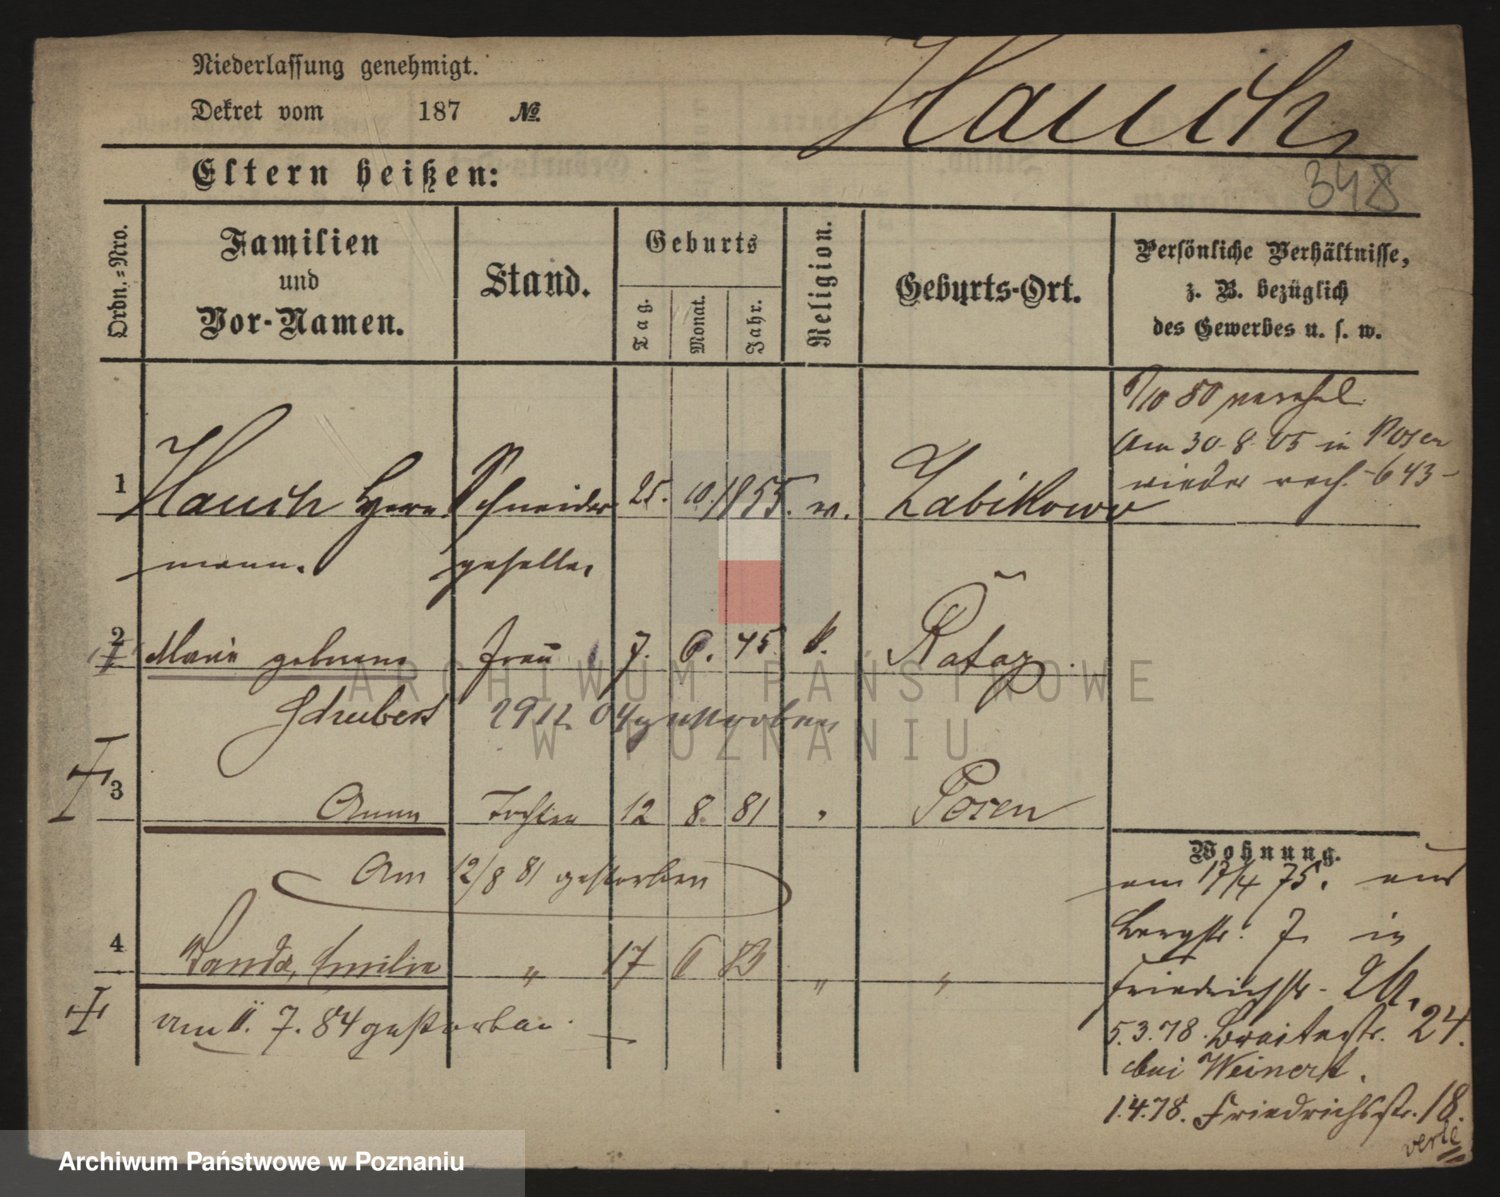 Niederlassung genehmigt.
Dekret vom 187 №
Hauch
348
Eltern heißen:
Ordn.-Nro.
Familien
und
Vor-Namen.
Stand.
Geburts
Tag.
Monat.
Jahr.
Religion.
Geburts-Ort.
Persönliche Verhältnisse,
z. B. bezüglich
des Gewerbes u. s. w.
80
Am 30.8.05 in Posen
wieder 643
1 Hauch Herr Schneider 25. 10. 1855. Zabikowo
mann. geselle.
2 Marie geborene Frau 7. 6. 45. k. Rataj
Schubert 29 12 04 gestorben
3 Anna Tochter 12 8. 81 " Posen
Am 12/8 81 gestorben
4 Wanda, Emilie " 17 6 83 " "
am 11. 7. 84 gestorben.
Wohnung.
am 17/4 75. aus
Bergstr. 7 in
Friedrichstr.
5.3.78. Breitestr. 24.
bei Weinert.
1.4.78. Friedrichsstr. 18.
verte
ARCHIWUM PAŃSTWOWE
W POZNANIU
Archiwum Państwowe w Poznaniu